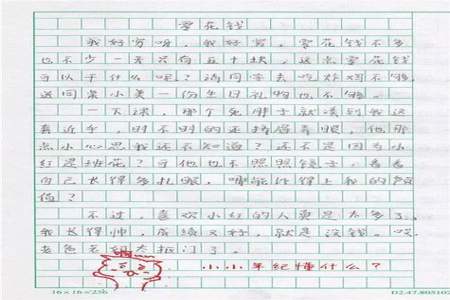 零花钱
我好穷呀，我好穷，零花钱不多
也不少一天只有五十块，这点零花钱
可以干什么呢？请同学去吃炸鸡不够，
送同桌小美一份生日礼物也不够。
一下课，那个死胖子就凑到我这
套近乎，时不时的还挤眉弄眼，他那
点小心思我还不知道？还不是因为小
红是班花？可他也不照照镜子，看看
自己长得多扎眼，哪能比得上我的颜
值？
不过，喜欢小红的人真是太多了，
我长得帅，成绩又好，就是没钱。哎
老爸
小小年纪懂什么？
16×16=256